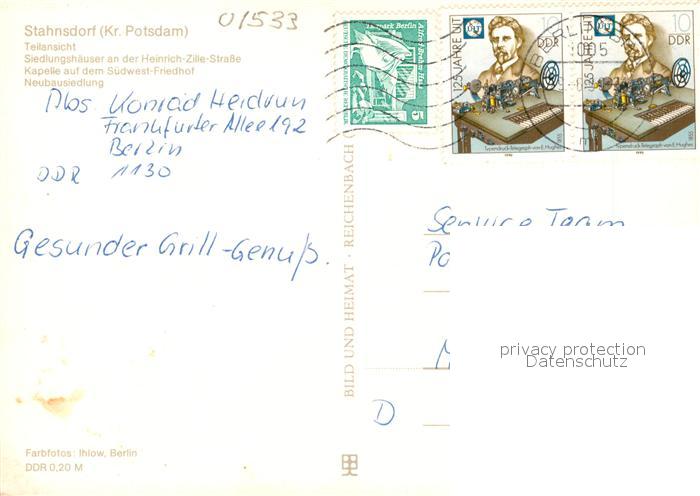 01533
Stahnsdorf (Kr. Potsdam)
Teilansicht
Siedlungshäuser an der Heinrich-Zille-Straße
Kapelle auf dem Südwest-Friedhof
Neubausiedlung
Abs Konrad Heidrun
Frankfurter Allee 192
Berlin
DDR 1130
Gesunder Grill-Genuß.
Farbfotos: Ihlow, Berlin
DDR 0,20 M
BILD UND HEIMAT · REICHENBACH
Tierpark Berlin
5
125 JAHRE UIT
10
DDR
Typendruck-Telegraph von E. Hughes
1855
1990
125 JAHRE UIT
10
DDR
Typendruck-Telegraph von E. Hughes
1855
1990
BERLIN
Service Team
M
D
privacy protection
Datenschutz